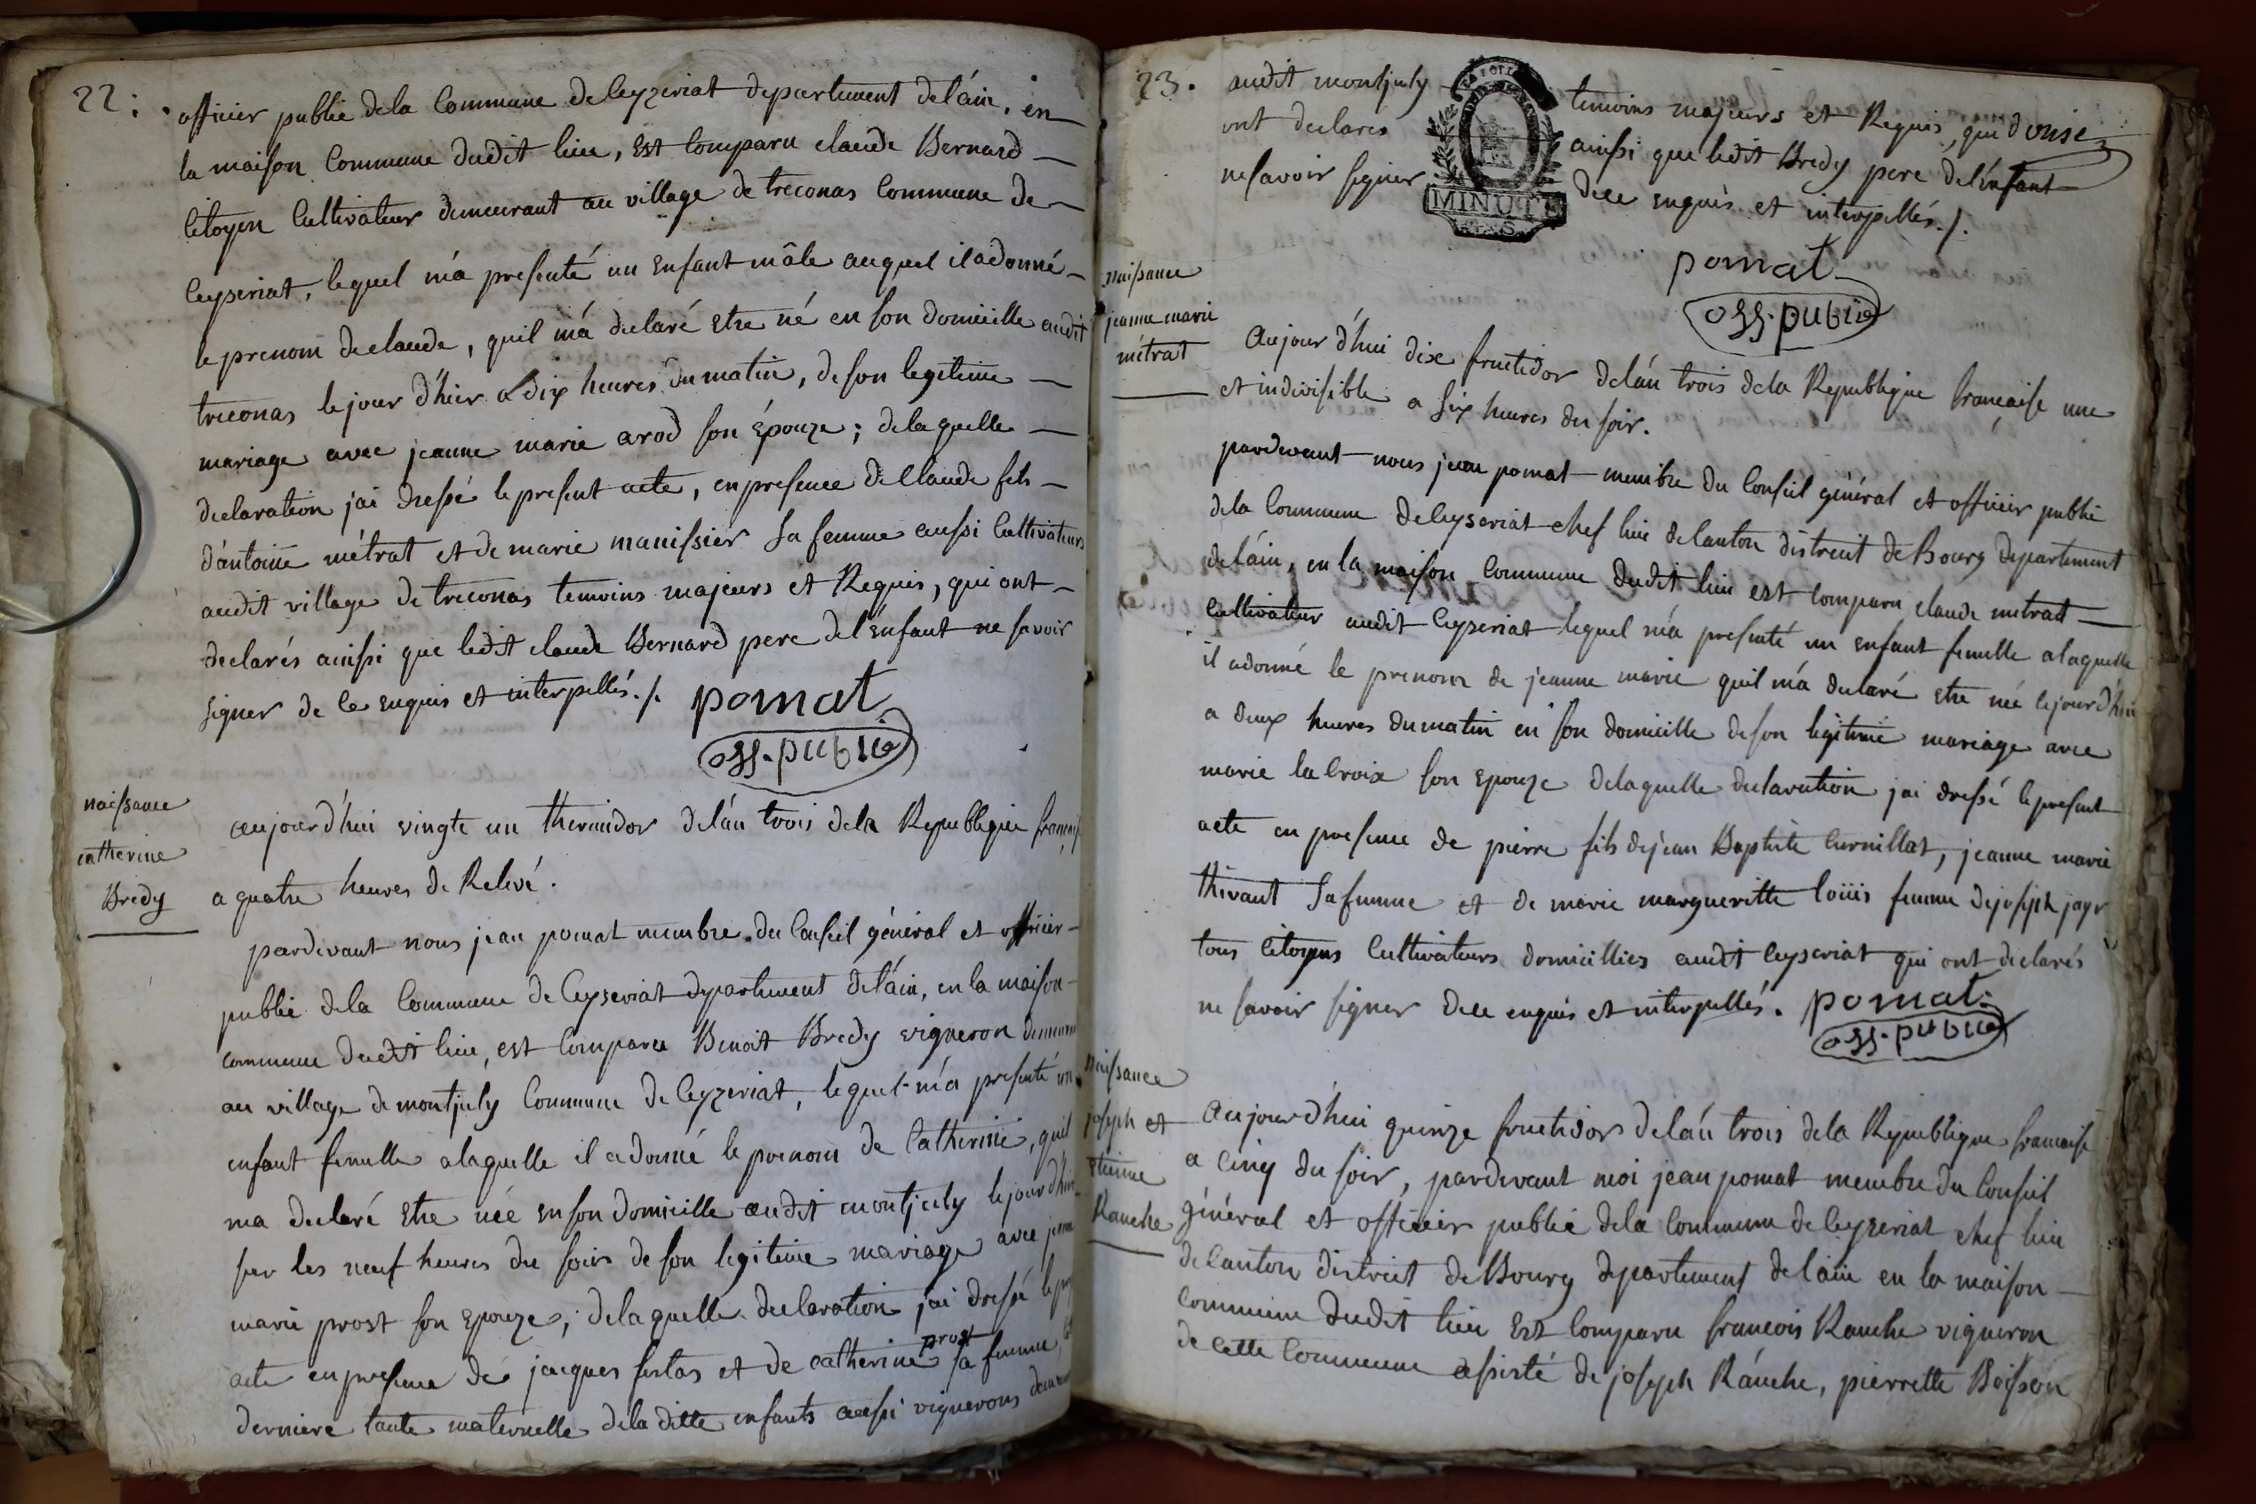 22.
officier public dela Commune de Ceyzeriat departement de láin, en
la maison Commune dudit lieu, Est Comparu claude Bernard
Citoyen Cultivateur demeurant au village de treconas Commune de
Ceyseriat, lequel má presenté un Enfant mâle auquel il adonné
le prenom de claude, quil má declaré Etre né en son domicille audit
treconas le jour d'hier a dix heures du matin, de son legitime
mariage avec jeanne marie arod son épouze ; de laquelle
declaration j'ai dressé le present acte, en presence de Claude fils
d'antoine métrat et de marie manissier sa femme aussi Cultivateurs
audit village de treconas temoins majeurs et Requis, qui ont
declarés ainssi que ledit claude Bernard pere de l'énfant ne savoir
signer de ce enquis et interpellés ./. pomat
off. public
naissance
catherine
Bredy
aujourd'hui vingte un thermidor delán trois dela Republique
a quatre heures de Relevé.
pardevant nous jean pomat membre du Conseil général et officier
public dela Commune de Ceyseriat departement de láin, en la maison
commune dudit lieu, est Comparu Benoit Bredy vigneron
au village de montjuly Commune de Ceyzeriat, lequel má presenté un
enfant femelle alaquelle il a donné le prenom de Catherine, quil
ma declaré Etre née en son domicille audit montjuly le jour d'hier
sur les neuf heures du soir de son legitime mariage avec
marie prost son Epouze, de laquelle declaration j'ai dressé le
acte en presence de jacques et de catherine prost sa femme
derniere tante maternelle de la ditte enfants aussi vignerons
23.
audit montjuly temoins majeurs et Requis, que
ont declarés ainssi que ledit Bredy pere de l'énfant
ne savoir signer de ce enquis et interpellés ./.
MINUTE
pomat
off. public
naissance
jeanne marie
métrat
Aujourd'hui dix fructidor delán trois dela Republique francaise une
et indivisible a six heures du soir.
pardevant nous jean pomat membre du Conseil général et officier public
dela Commune de Ceyseriat chef lieu de Canton district de Bourg departement
de láin, en la maison Commune dudit lieu est comparu claude metrat
Cultivateur audit Ceyseriat lequel má presenté un enfant femelle alaquelle
il adonné le prenom de jeanne marie quil má declaré etre née le jour d'hier
a deux heures du matin en son domicille de son legitime mariage avec
marie la Croix son Epouze de laquelle declaration j'ai dressé le present
acte en presence de pierre fils de jean Baptiste Curnillat, jeanne marie
thivant sa femme et de marie margueritte loüis femme de joseph
tous Citoyens Cultivateurs domicilliés audit Ceyseriat qui ont declarés
ne savoir signer de ce enquis et interpellés. pomat
off. public
naissance
joseph et
etienne
Rauche
Aujourd'hui quinze fructidor delán trois dela Republique francaise
a Cinq du soir, pardevant moi jean pomat membre du Conseil
général et officier public dela Commune de Ceyzeriat chef lieu
de Canton district de Bourg departement de láin en la maison
commune dudit lieu Est Comparu francois Rauche vigneron
de Cette Commune assisté de joseph Rauche, pierrette Boisson